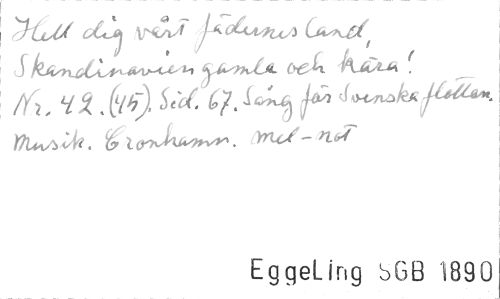 Hell dig vårt fädernesland,
Skandinavien gamla och kära!
Nr. 42. (45). Sid. 67. Sång för Svenska flottan.
Musik. Cronhamn. mel-not
EggeLing SGB 1890